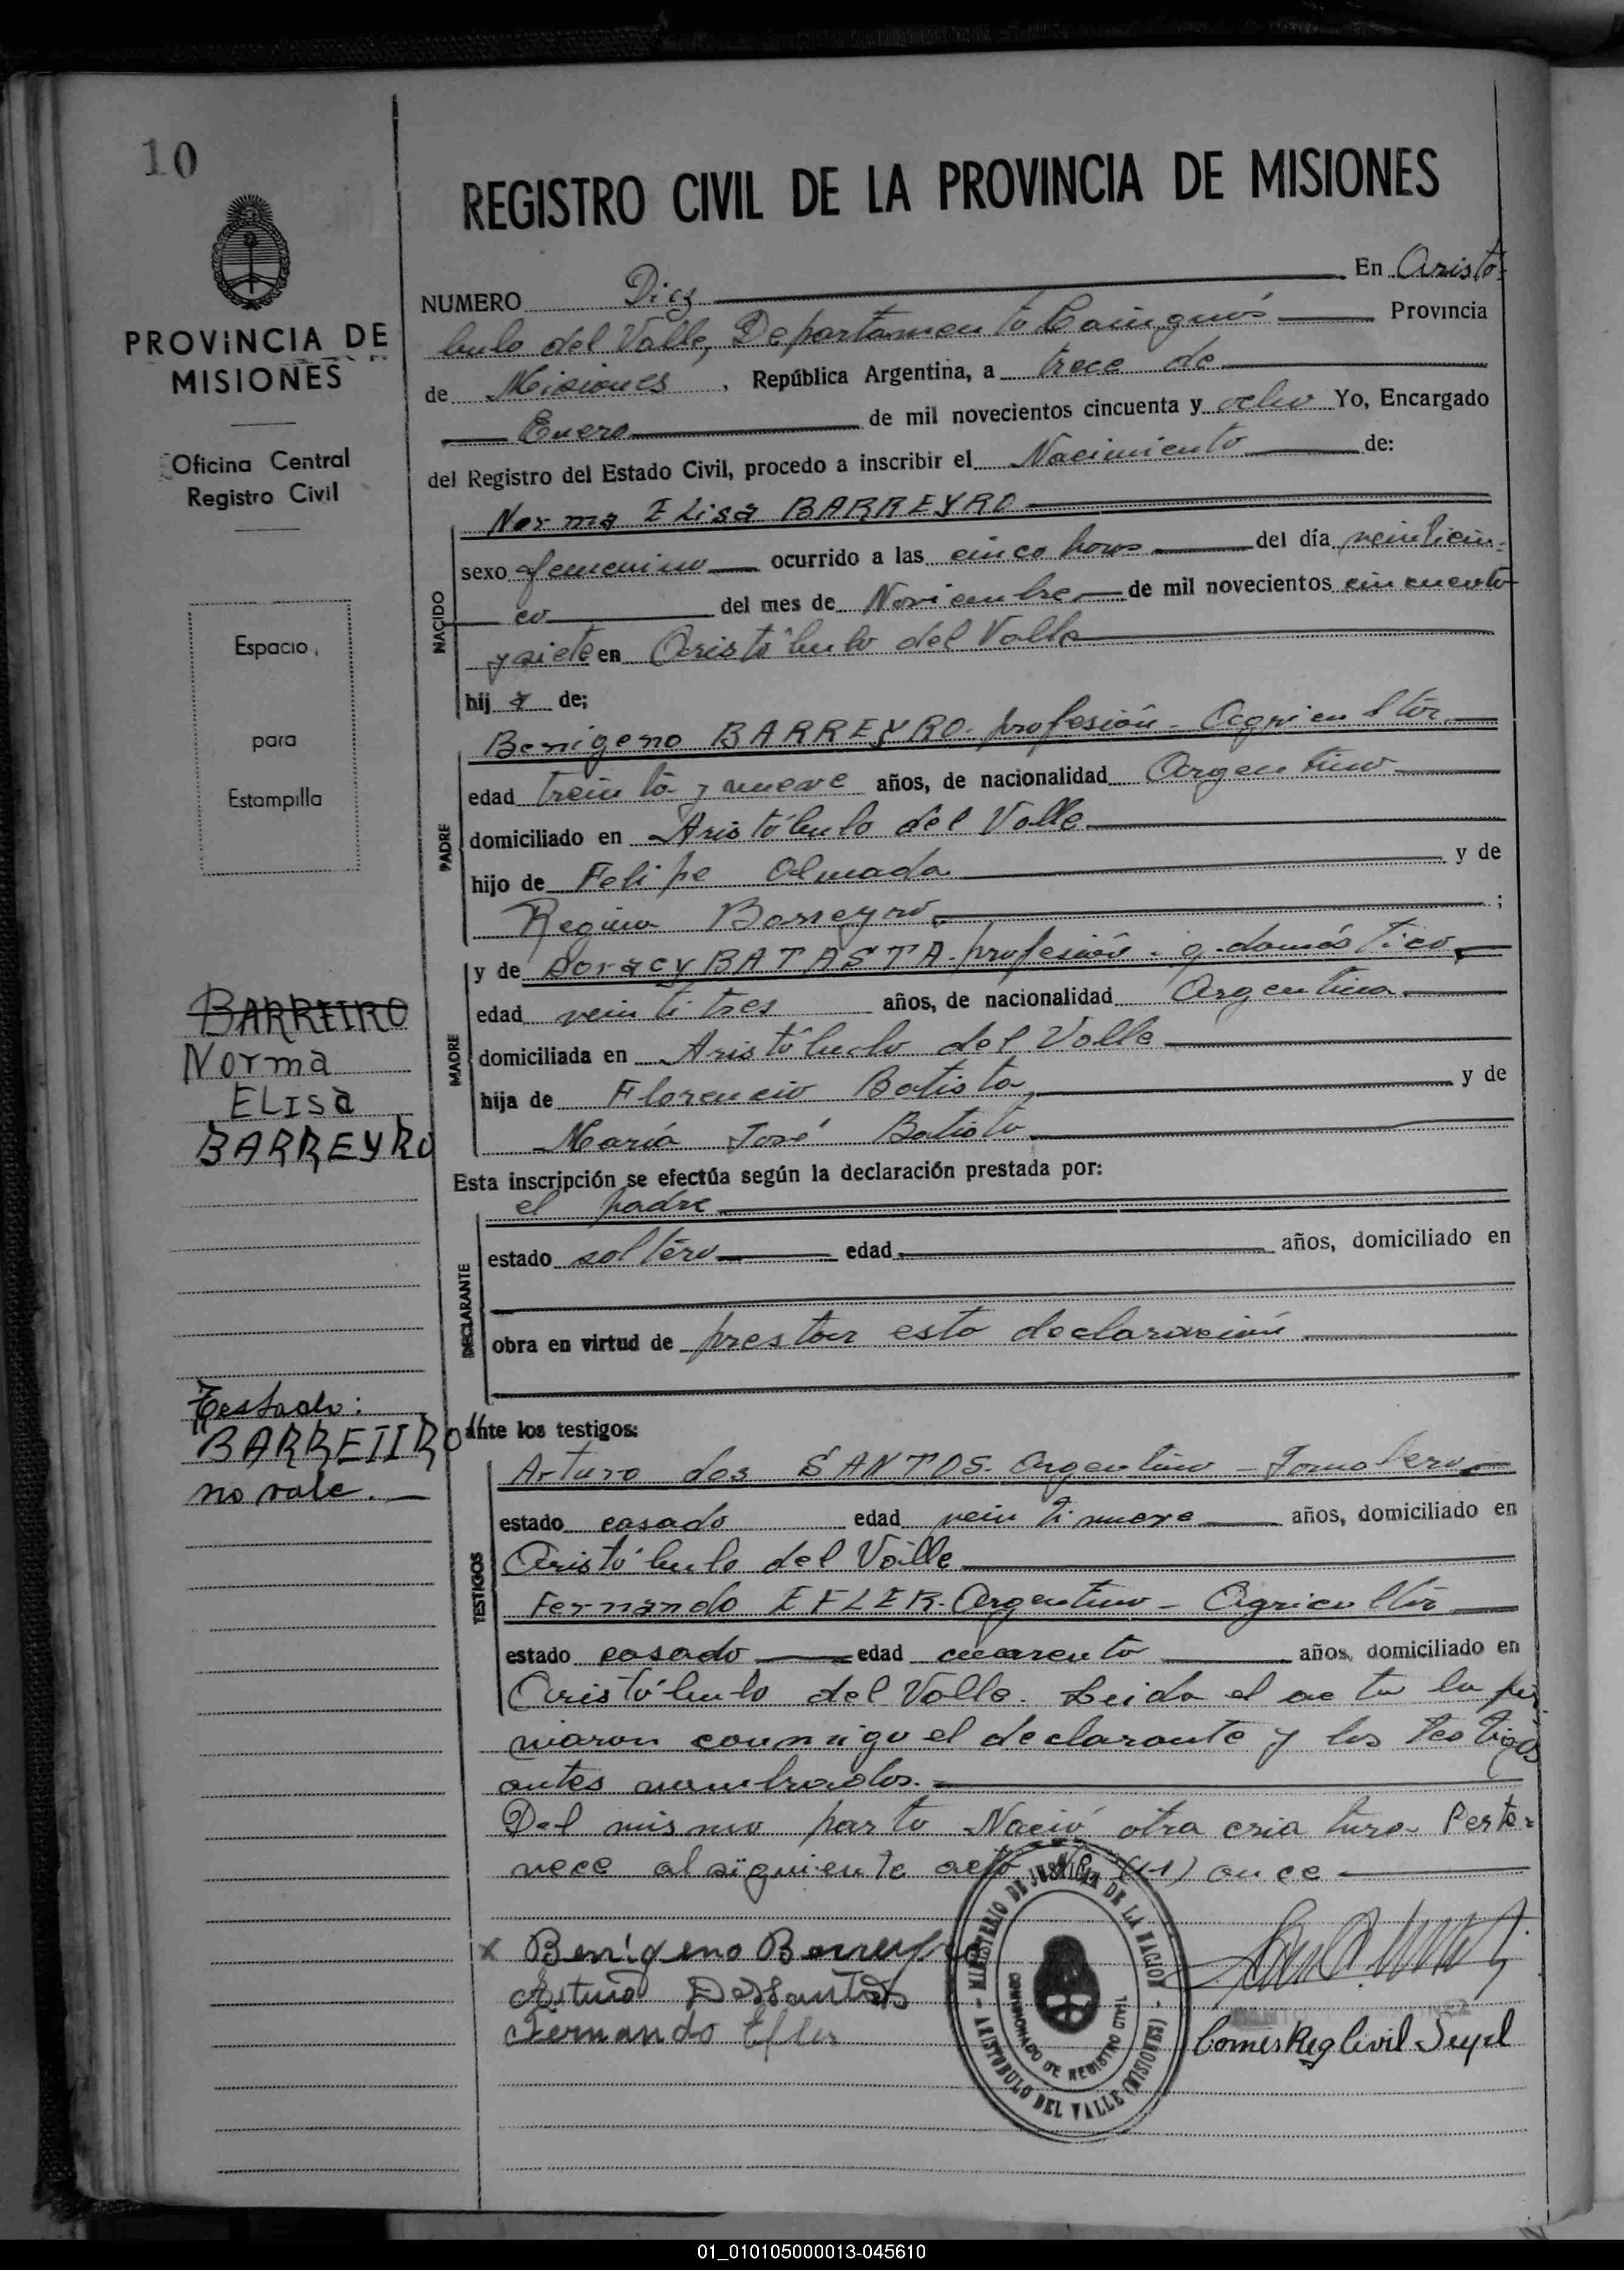 10
REGISTRO CIVIL DE LA PROVINCIA DE MISIONES
PROVINCIA DE
MISIONES
Oficina Central
Registro Civil
Espacio
para
Estampilla
NUMERO Diez En Aristó-
bulo del Valle, Departamento Cainguás Provincia
de Misiones, República Argentina, a trece de
Enero de mil novecientos cincuenta y ocho Yo, Encargado
del Registro del Estado Civil, procedo a inscribir el Nacimiento de:
NACIDO
Norma ELisa BARREYRO
sexo femenino ocurrido a las cinco horas del día veinticin-
co del mes de Noviembre de mil novecientos cincuenta
y siete en Aristóbulo del Valle
hij a de;
PADRE
Benigeno BARREYRO - profesión - Agricultor
edad treinta y nueve años, de nacionalidad Argentino
domiciliado en Aristóbulo del Valle
hijo de Felipe Almada y de
Regina Barreyro ;
MADRE
y de Doracy BATASTA - profesión - q. doméstico
edad veintitres años, de nacionalidad Argentina
domiciliada en Aristóbulo del Valle
hija de Florencio Batista y de
María José Batista
BARREIRO
Norma
ELisa
BARREYRO
Esta inscripción se efectúa según la declaración prestada por:
DECLARANTE
el padre
estado soltero edad años, domiciliado en
obra en virtud de prestar esta declaración
Testado:
"BARREIIRO"
no vale.
Ante los testigos:
TESTIGOS
Arturo dos SANTOS - Argentino - Jornalero
estado casado edad veintinueve años, domiciliado en
Aristóbulo del Valle
Fernando EFLER - Argentino - Agricultor
estado casado edad cuarenta años, domiciliado en
Aristóbulo del Valle. Leida el acta la fir
maron conmigo el declarante y los testigos
antes nombrados.
Del mismo parto Nació otra criatura - Perte-
nece al siguiente acta Nº (11) once
x Benigeno Barreyro
Arturo Dossantos
Fernando Efler
MINISTERIO DE JUSTICIA DE LA NACION - ARISTOBULO DEL VALLE (MISIONES) -
COMISIONADO DE REGISTRO CIVIL
Comis Reg Civil Supl
01_010105000013-045610